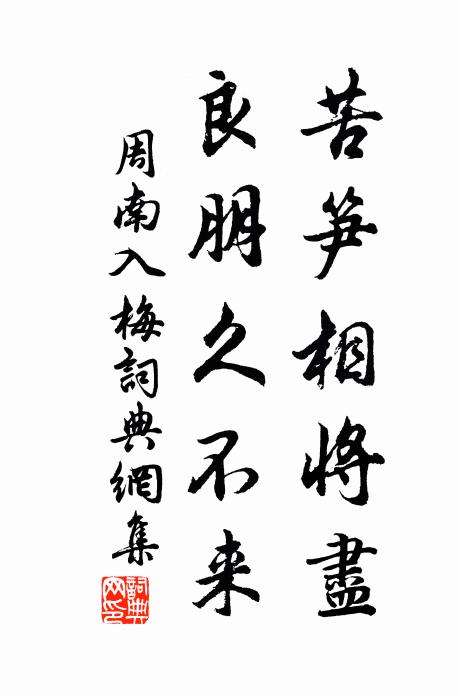 苦笋相将盡
良朋久不来
周南入梅詞典網集
詞典网印